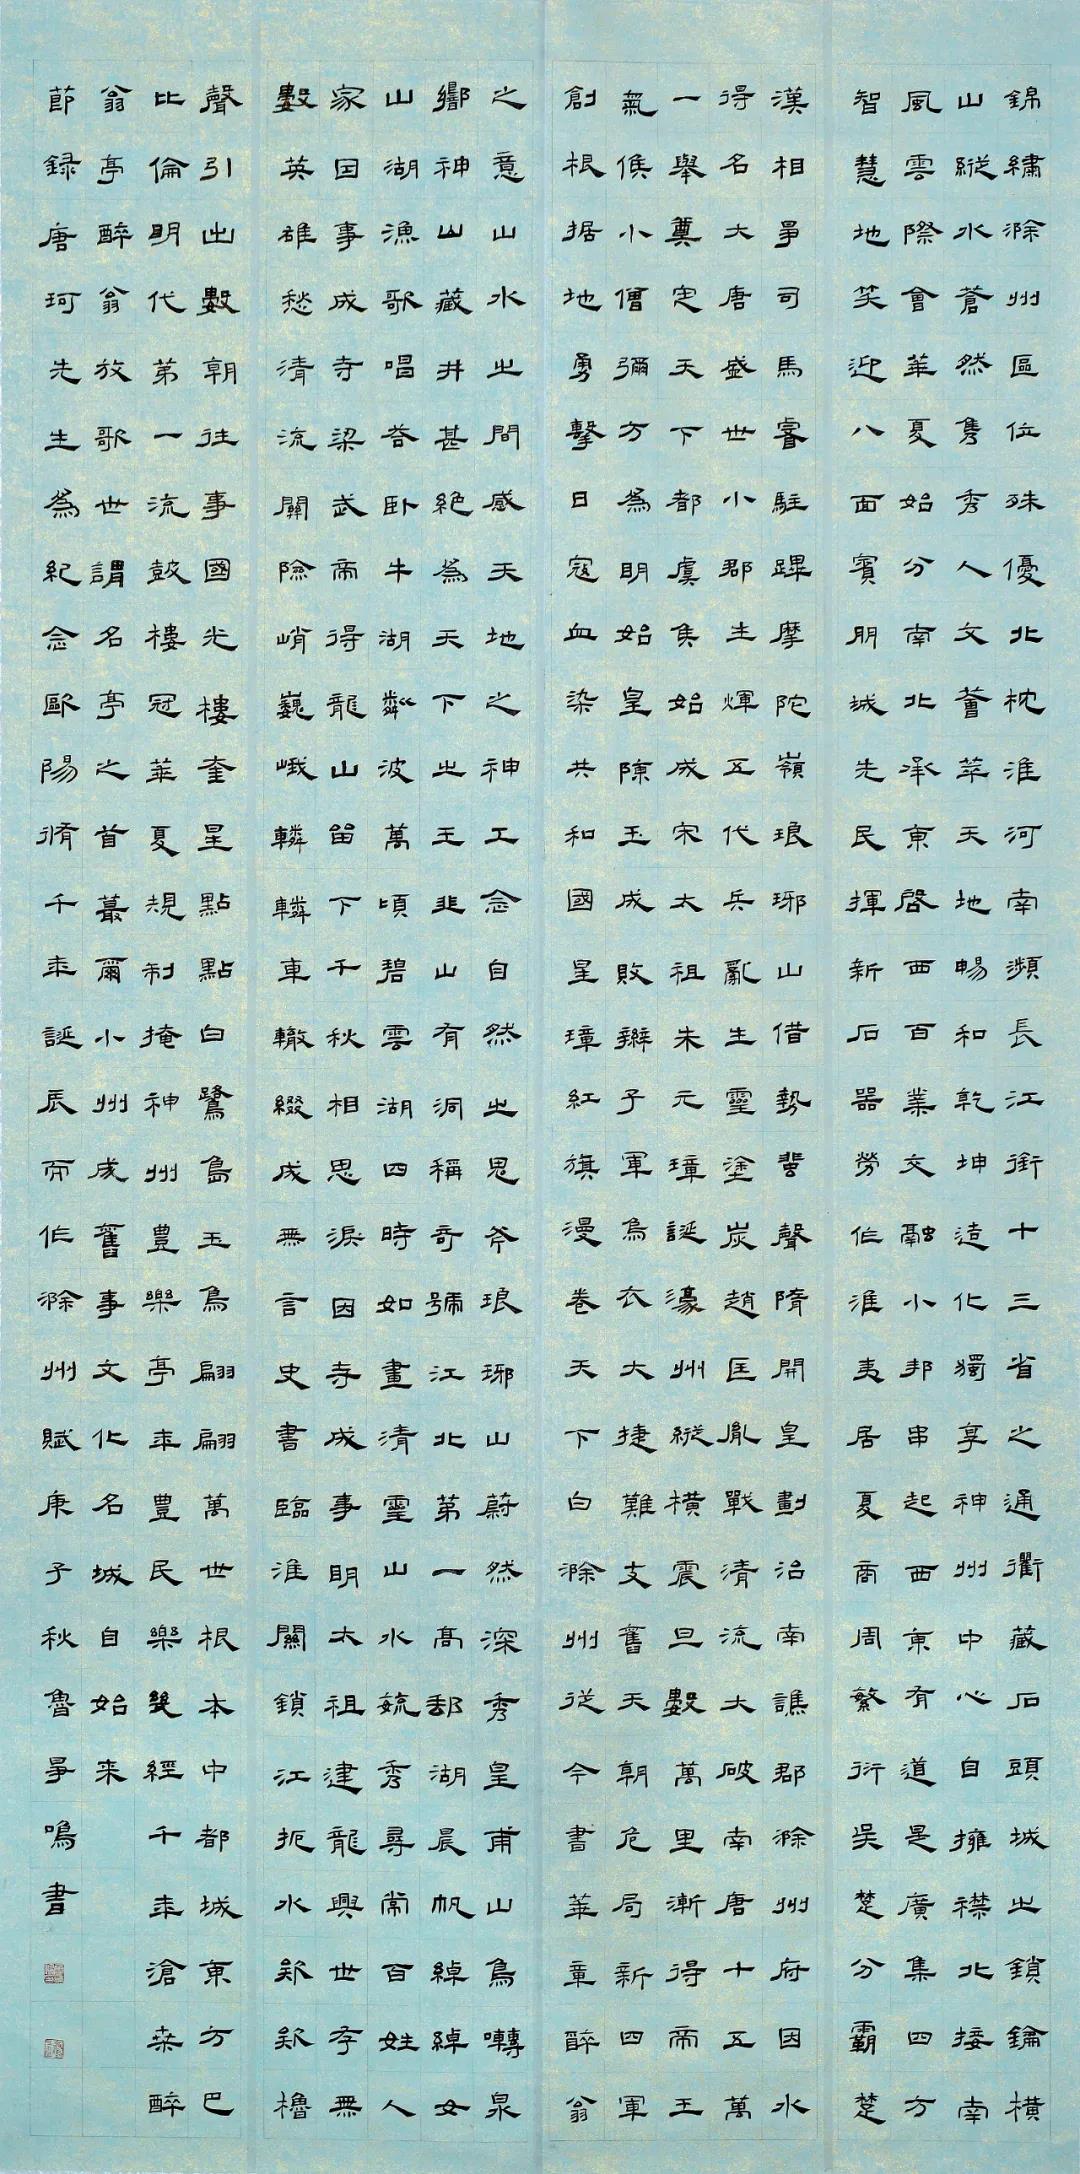 錦繡滁州區位殊優北枕淮河南瀕長江銜十三省之通衢藏石頭城之鎖鑰橫
山縱水蒼然雋秀人文薈萃天地暢和乾坤造化獨享神州中心自擁襟北接南
風雲際會華夏始分南北承東啓西百業交融小邦串起西東有道是廣集四方
智慧地笑迎八面賓朋城先民揮新石器勞作淮夷居夏商周繁衍吳楚分霸楚
漢相爭司馬睿駐蹕摩陀嶺琅琊山借勢蜚聲隋開皇劃治南譙郡滁州府因水
得名大唐盛世小郡生輝五代兵亂生靈塗炭趙匡胤戰清流大破南唐十五萬
一舉奠定天下都虞侯始成宋太祖朱元璋誕濠州縱橫震旦數萬里漸得帝王
氣候小僧彌方為明始皇陳玉成敗辮子軍烏衣大捷難支舊天朝危局新四軍
創根据地勇擊日寇血染共和國星璋紅旗漫卷天下白滁州從今書華章醉翁
之意山水之間感天地之神工念自然之鬼斧琅琊山蔚然深秀皇甫山鳥囀泉
響神山藏井甚絕為天下之王韭山有洞稱奇號江北第一高郵湖晨帆綽綽女
山湖漁歌唱答卧牛湖粼波萬頃碧雲湖四時如畫清靈山水毓秀尋常百姓人
家因事成寺梁武帝得龍山留下千秋相思淚因寺成事明太祖建龍興世存無
數英雄愁清流關險峭巍峨轔轔車轍綴成無言史書臨淮關鎖江扼水欸欸櫓
聲引出數朝往事國光樓奎星點點白鷺島玉鳥翩翩萬世根本中都城東方巴
比倫明代第一流鼓樓冠華夏規制掩神州豐樂亭年豐民樂幾經千年滄桑醉
翁亭醉翁放歌世謂名亭之首蕞爾小州成舊事文化名城自始来
節録唐珂先生為紀念歐陽脩千年誕辰而作滁州賦庚子秋魯爭鳴書